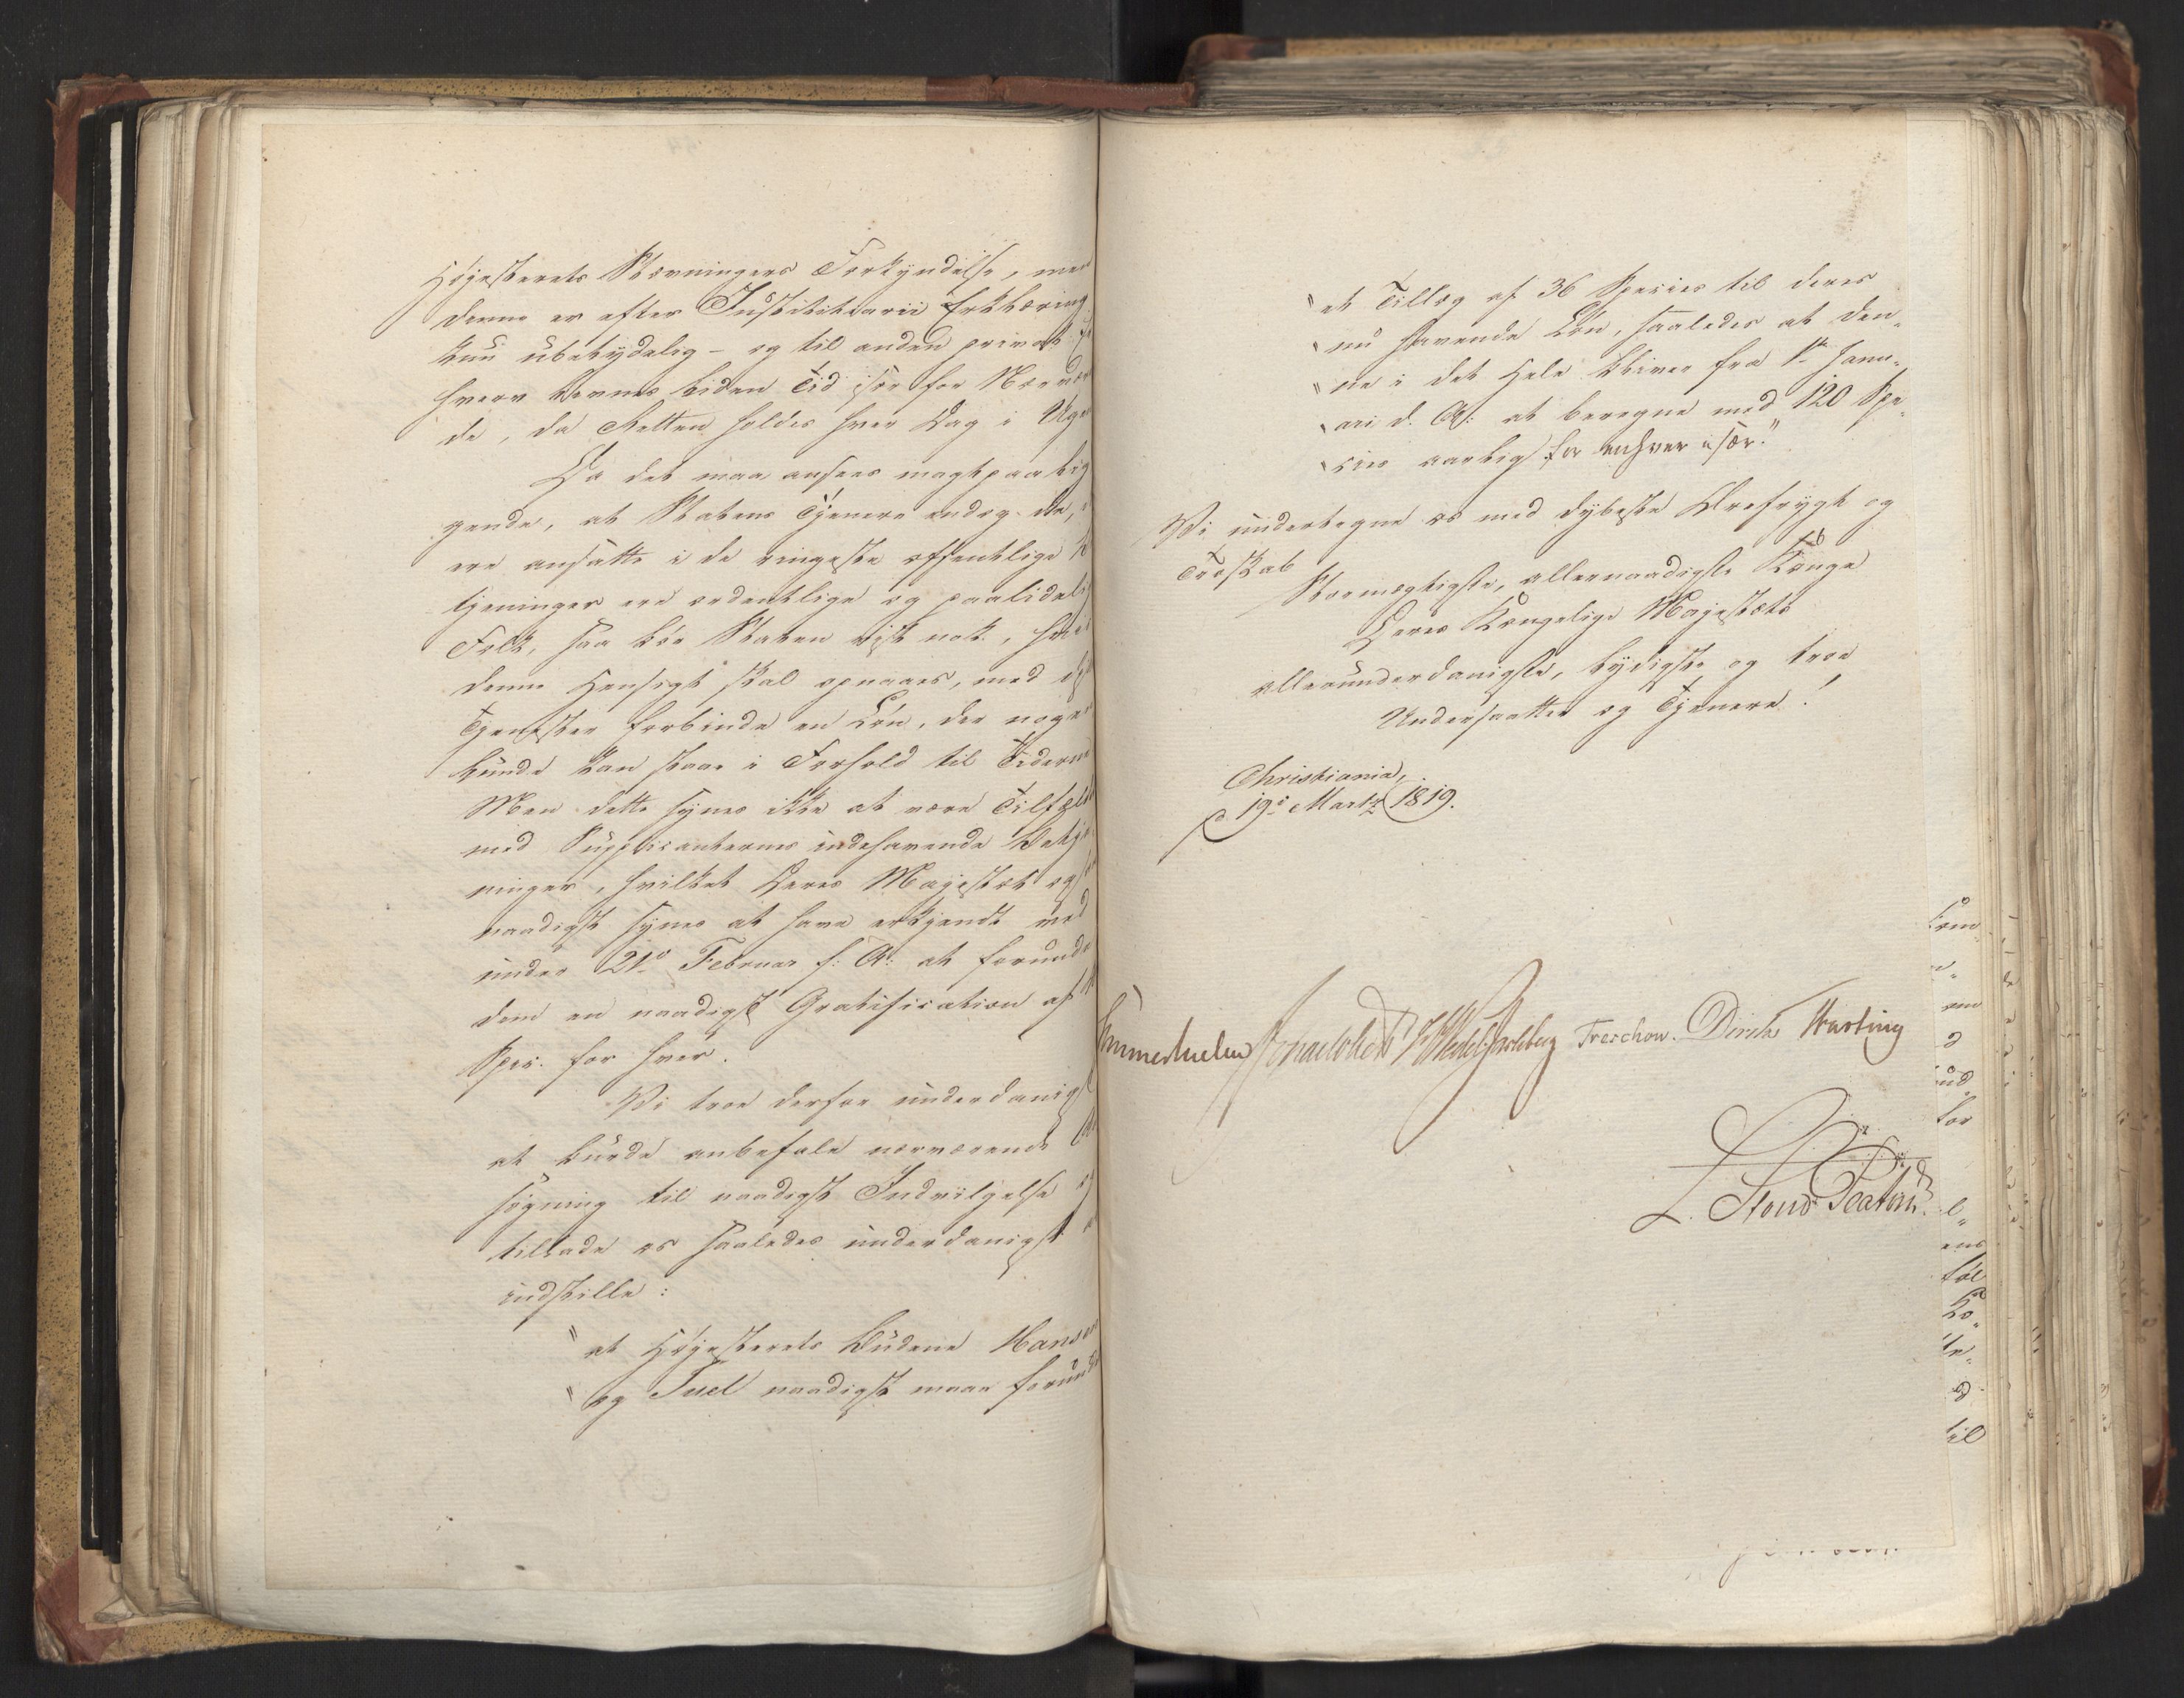 Højesterets Stævningers Forkyndelse, men
denne er efter Justitiarii Erklæring
kun ubetydelig – og til anden privat
hverv levnes liden Tid især for Nærvæ
de, da Retten holdes hver Dag i Uge
Da det maa ansees magtpaalig
gende, at Statens Tjenere endog de,
ere ansatte i de ringeste offentlige
tjeninger ere ordentlige og paalideli
Folk, saa bør Staten vist nok, hvis
denne Hensigt skal opnaaes, med di
Tjenester forbinde en Løn, der noge
lunde kan staae i Forhold til Tiderne
Men dette synes ikke at være Tilfæld
med Supplicanternes indehavende Betje
ninger, hvilket Deres Majestæt og
naadigst synes at have erkjendt ved
under 21de Februar f: A: at forunde
dem en naadigst Gratification af
Spec. for hver.
Vi troe derfor underdanigst
at burde anbefale nærværende An
søgning til naadigst Indvilgelse og
tillade os saaledes underdanigst
indstille:
"at Højesterets Budene Hansen
"og Juel naadigst maae forunde
"et Tillæg af 36 Species til deres
"nu havende Løn, saaledes at den„
"ne i det Hele bliver fra 1te Janu„
"ari d. A: at beregne med 120 Spe„
"cies aarlig for enhver især."
Vi undertegne os med dybeste Ærefrygt og
Troskab
Stormægtigste, allernaadigste Konge
Deres Kongelige Majestæts
allerunderdanigste, lydigste og troe
Undersaatter og Tjenere!
Christiania,
d. 19de Martz 1819.
Sommerhielm Wedel Jarlsberg Treschow. Diriks Hasting
L. Stoud Platou